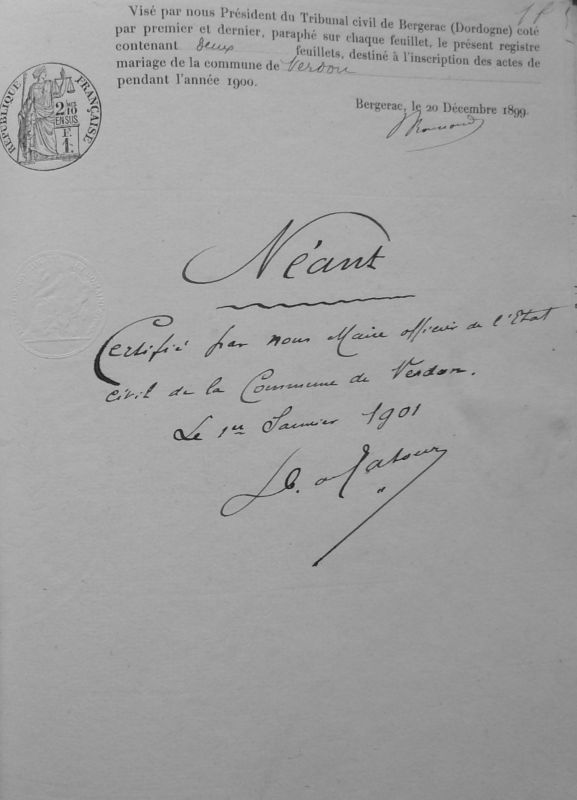 Visé par nous Président du Tribunal civil de Bergerac (Dordogne) coté
par premier et dernier, paraphé sur chaque feuillet, le présent registre
contenant deux feuillets, destiné à l'inscription des actes de
mariage de la commune de Verdon
pendant l'année 1900.
Bergerac, le 20 Décembre 1899
RÉPUBLIQUE FRANÇAISE
2/10
EN SUS
1F.
Néant
Certifié par nous Maire officier de l'Etat
civil de la Commune de Verdon.
Le 1er Janvier 1901